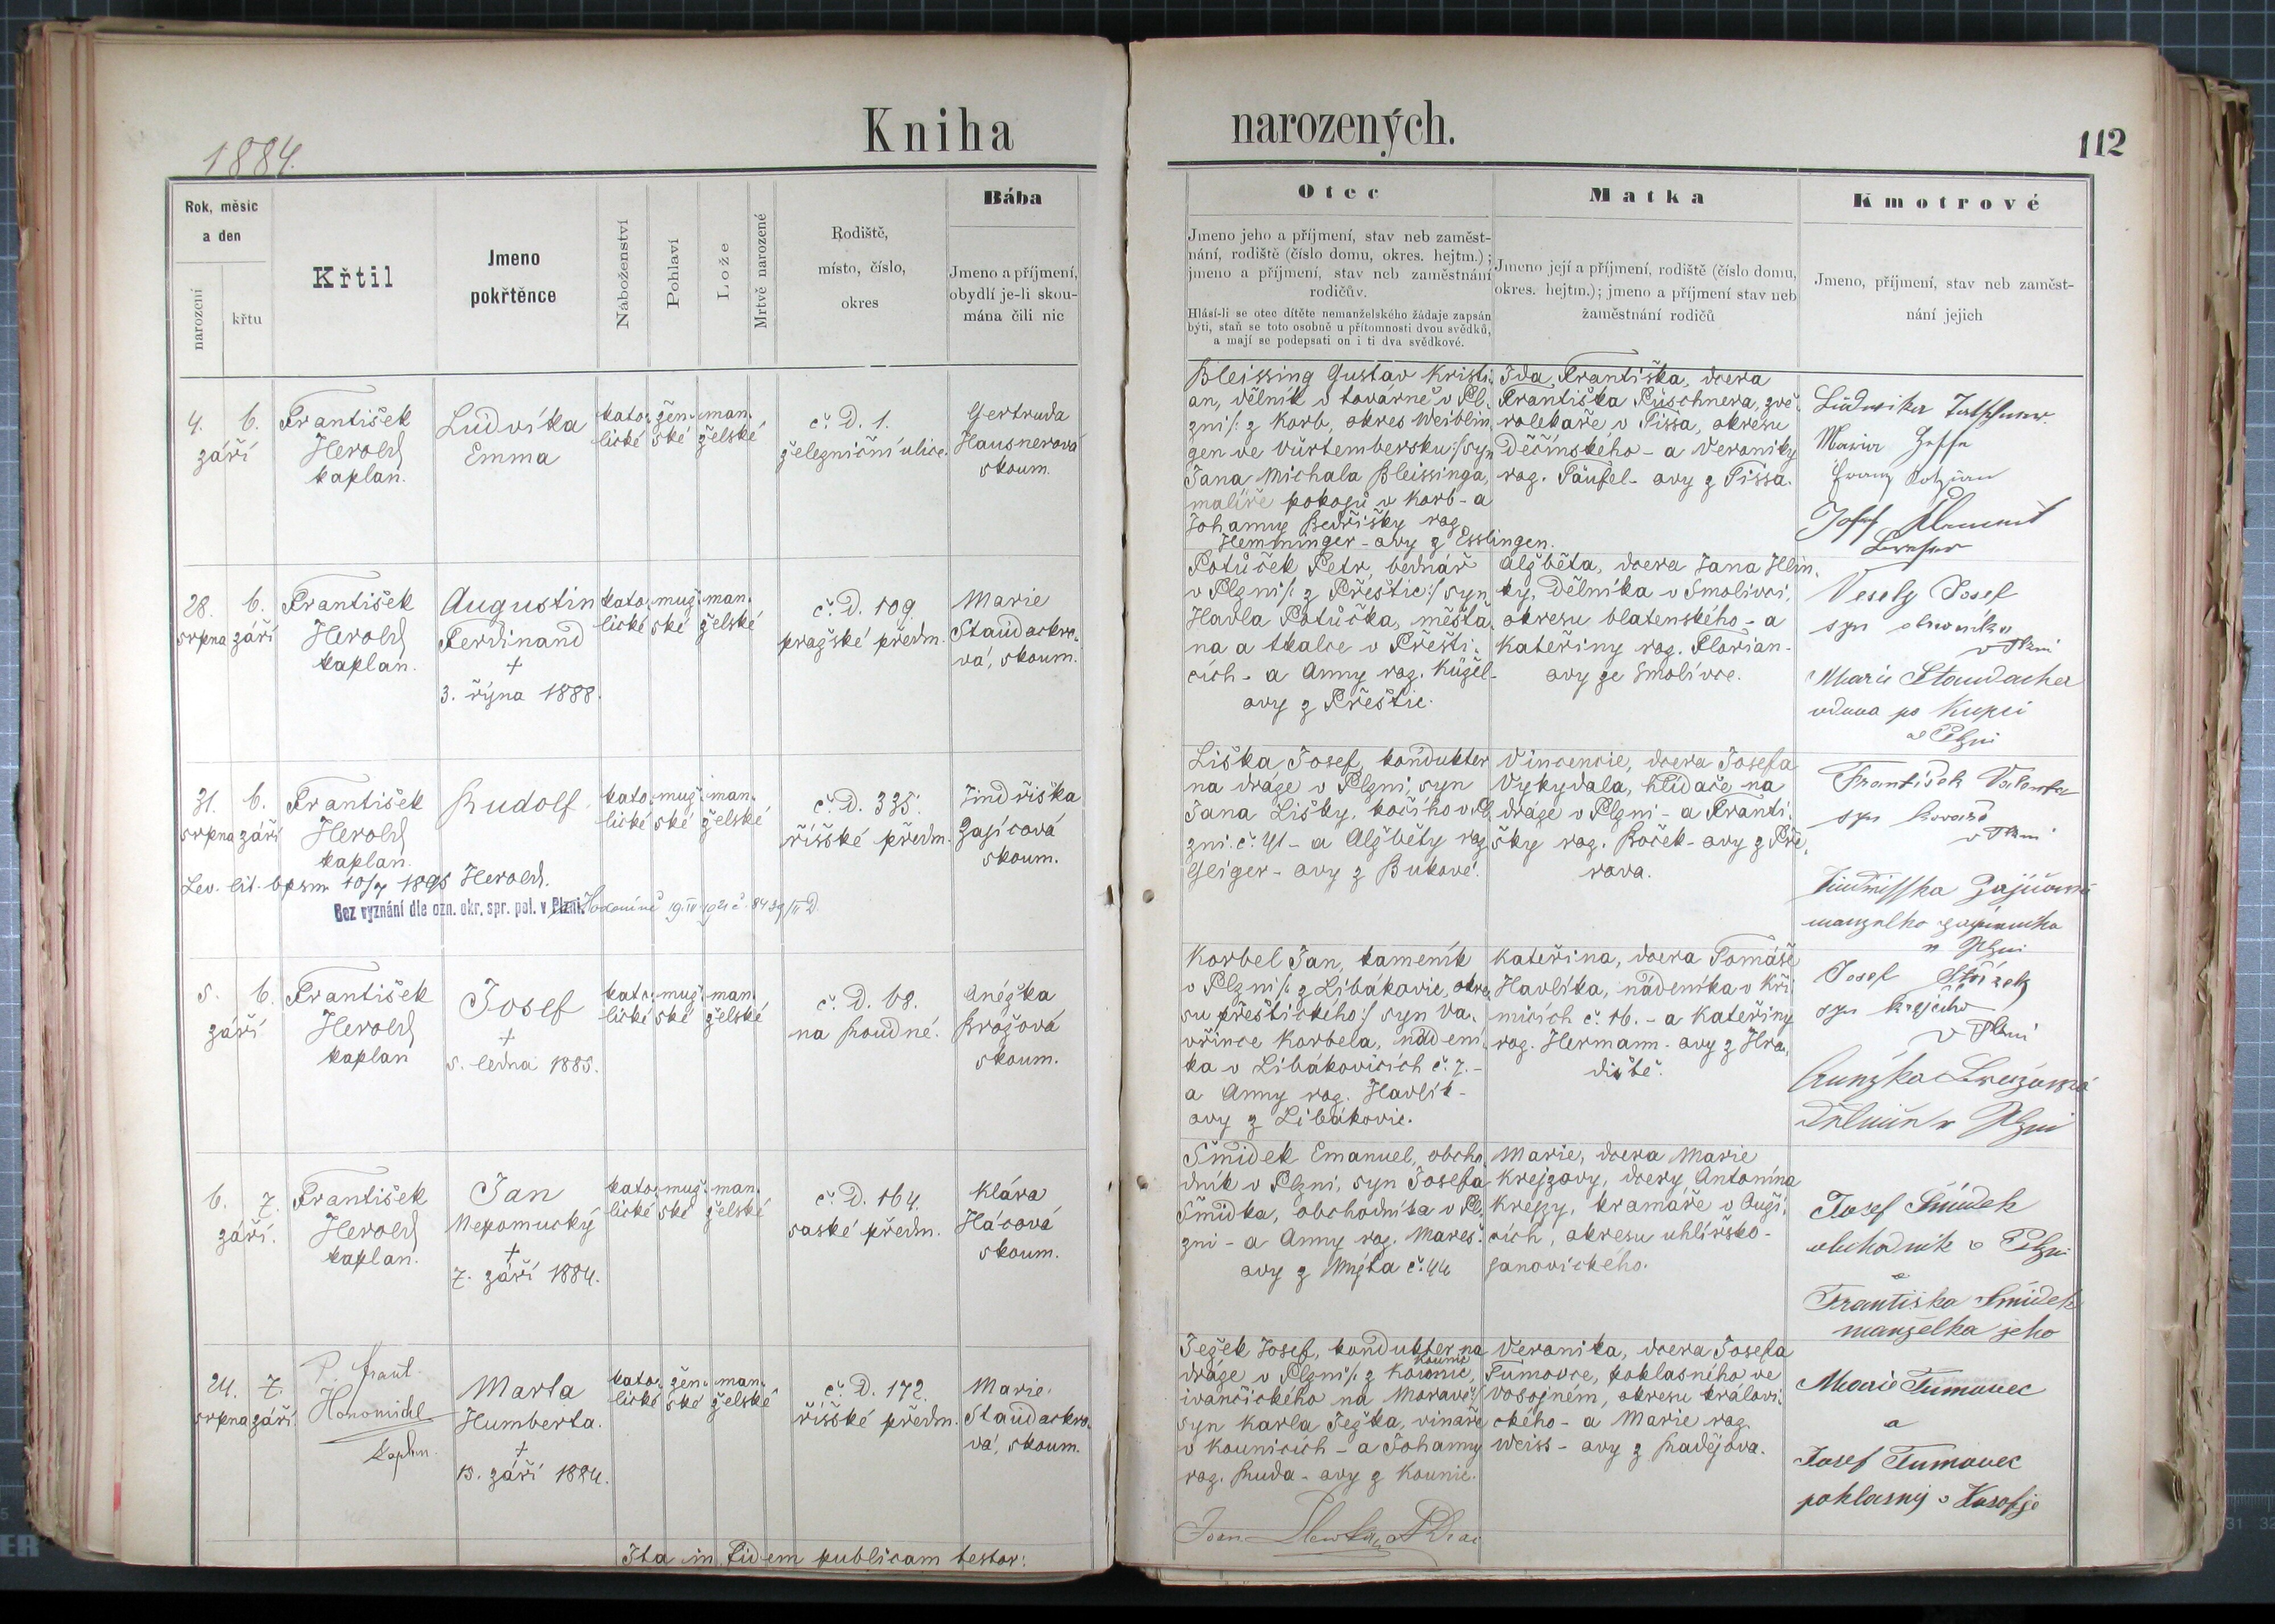 Kniha
narozených.
112
1884.
Rok, měsíc
a den
narození
křtu
Křtil
Jmeno
pokřtěnce
Náboženství
Pohlaví
Lože
Mrtvě narozené
Rodiště,
místo, číslo,
okres
Bába
Jmeno a příjmení,
obydlí je-li skou-
mána čili nic
Otec
Jmeno jeho a příjmení, stav neb zaměst-
nání, rodiště (číslo domu, okres. hejtm.);
jmeno a příjmení, stav neb zaměstnání
rodičův.
Hlásí-li se otec dítěte nemanželského žádaje zapsán
býti, staň se toto osobně u přítomnosti dvou svědků,
a mají se podepsati on i ti dva svědkové.
Matka
Jmeno její a příjmení, rodiště (číslo domu,
okres. hejtm.); jmeno a příjmení stav neb
zaměstnání rodičů
Kmotrové
Jmeno, příjmení, stav neb zaměst-
nání jejich
4. 6.
září
František
Herold
kaplan.
Ludvíka
Emma
kato-
lické
žen-
ské
man-
želské
č. D. 1.
železniční ulice.
Gertruda
Hausnerová
skoum.
Bleissing Gustav Kristi-
an, dělník v továrně v Pl-
zni /: z Korb, okres Weiblin-
gen ve Würtembersku :/ syn
Jana Michala Bleissinga,
malíře pokojů v Korb - a
Johanny Bedřišky roz.
Hemminger - ovy z Esslingen.
Ida, Františka, dcera
Františka Püschnera, zvě-
rolékaře v Tissa, okresu
Děčínského - a Veroniky
roz. Täufel - ovy z Tissa.
28. 6.
srpna září
František
Herold
kaplan.
Augustin
Ferdinand
†
3. října 1888.
kato-
lické
muž-
ské
man-
želské
č. D. 109
pražské předm.
Marie
Staudachro-
vá, skoum.
Potůček Petr, bednář
v Plzni /: z Přeštic :/ syn
Havla Potůčka, měšťa-
na a tkalce v Přešti-
cích - a Anny roz. Küžel-
ovy z Přeštic.
Alžběta, dcera Jana Hlin-
ky, dělníka v Smolivci,
okresu blatenského - a
Kateřiny roz. Florian-
ovy ze Smolivce.
Vesely Josef
syn
v Plzni
Marie Staudacher
vdova po Kupci
v Plzni
31. 6.
srpna září
František
Herold
kaplan.
Rudolf
kato-
lické
muž-
ské
man-
želské
č. D. 335.
říšské předm.
Jindřiška
Zajícová
skoum.
Lev. lit. bpsm 10/7 1895 Herold.
Bez vyznání dle ozn. okr. spr. pol. v Plzni.
Hodoníně 19. IV. 1921 č. 8439/II D.
Liška Josef, kondukter
na dráze v Plzni, syn
Jana Lišky, kočího v Pl-
zni č. 41 - a Alžběty roz.
Geiger - ovy z Bukové.
Vincencie, dcera Josefa
Vykydala, hlídače na
dráze v Plzni - a Franti-
šky roz. Boček - ovy z Pře-
rova.
František Valenta
syn kováře
v Plzni
v Plzni
5. 6.
září
František
Herold
kaplan
Josef
†
5. ledna 1885.
kato-
lické
muž-
ské
man-
želské
č. D. 68.
na Roudné.
Anéžka
Brožová
skoum.
Korbel Jan, kameník
v Plzni /: z Libákovic, okre-
su přeštického :/ syn Va-
vřince Korbela, nádení-
ka v Libákovicích č. 7. -
a Anny roz. Havlík -
ovy z Libákovic.
Kateřina, dcera Tomáše
Havlíka, nádeníka v Kři-
micích č. 16. - a Kateřiny
roz. Hermann - ovy z Hra-
diště.
Josef
syn krejčího
v Plzni
6. 7.
září.
František
Herold
kaplan.
Jan
Nepomucký
†
7. září 1884.
kato-
lické
muž-
ské
man-
želské
č. D. 164.
saské předm.
Klára
Hácová
skoum.
Šmídek Emanuel, obcho-
dník v Plzni, syn Josefa
Šmídka, obchodníka v Pl-
zni - a Anny roz. Mareš -
ovy z Mýta č. 44
Marie, dcera Marie
Krejzovy, dcery Antonína
Krejzy, kramáře v Auži-
cích, okresu uhlířsko-
janovického.
Josef Šmídek
obchodník v Plzni
a
Františka Šmídek
manželka jeho
24. 7.
srpna září
P. Frant.
kaplan.
Marta
Humberta.
†
13. září 1884.
kato-
lické
žen-
ské
man-
želské
č. D. 172.
říšské předm.
Marie
Staudachro-
vá, skoum.
Ježek Josef, kondukter na
Kounic
dráze v Plzni /: z Kounic,
ivančického na Moravě :/
syn Karla Ježka, vináře
v Kounicích - a Johanny
roz. Ruda - ovy z Kounic.
Veronika, dcera Josefa
Tumovce, poklasného ve
Vosojném, okresu královi-
ckého - a Marie roz.
Weiss - ovy z Radějova.
Marie Tumovec
a
Josef Tumovec
poklasný
Ita in fidem publicam testor: